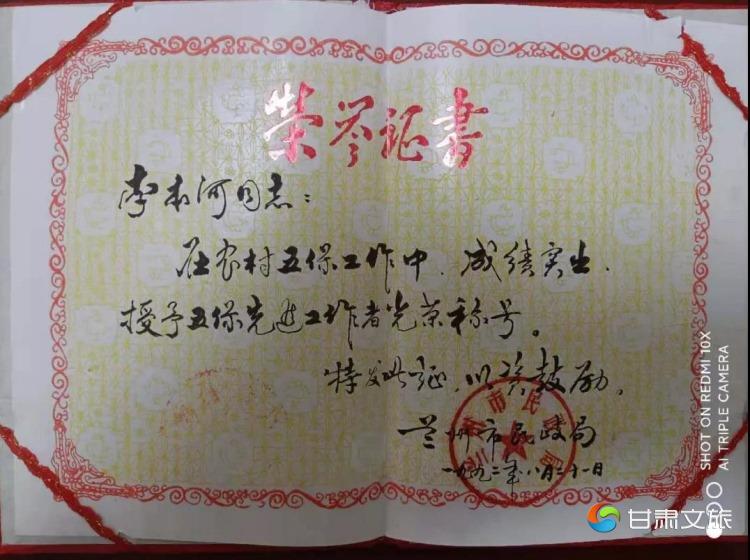 荣誉证书
李本河同志：
在农村五保工作中，成绩突出，
授予五保先进工作者光荣称号。
特发此证，以资鼓励。
兰州市民政局
一九九二年八月二十一日
SHOT ON REDMI 10X
AI TRIPLE CAMERA
甘肃文旅